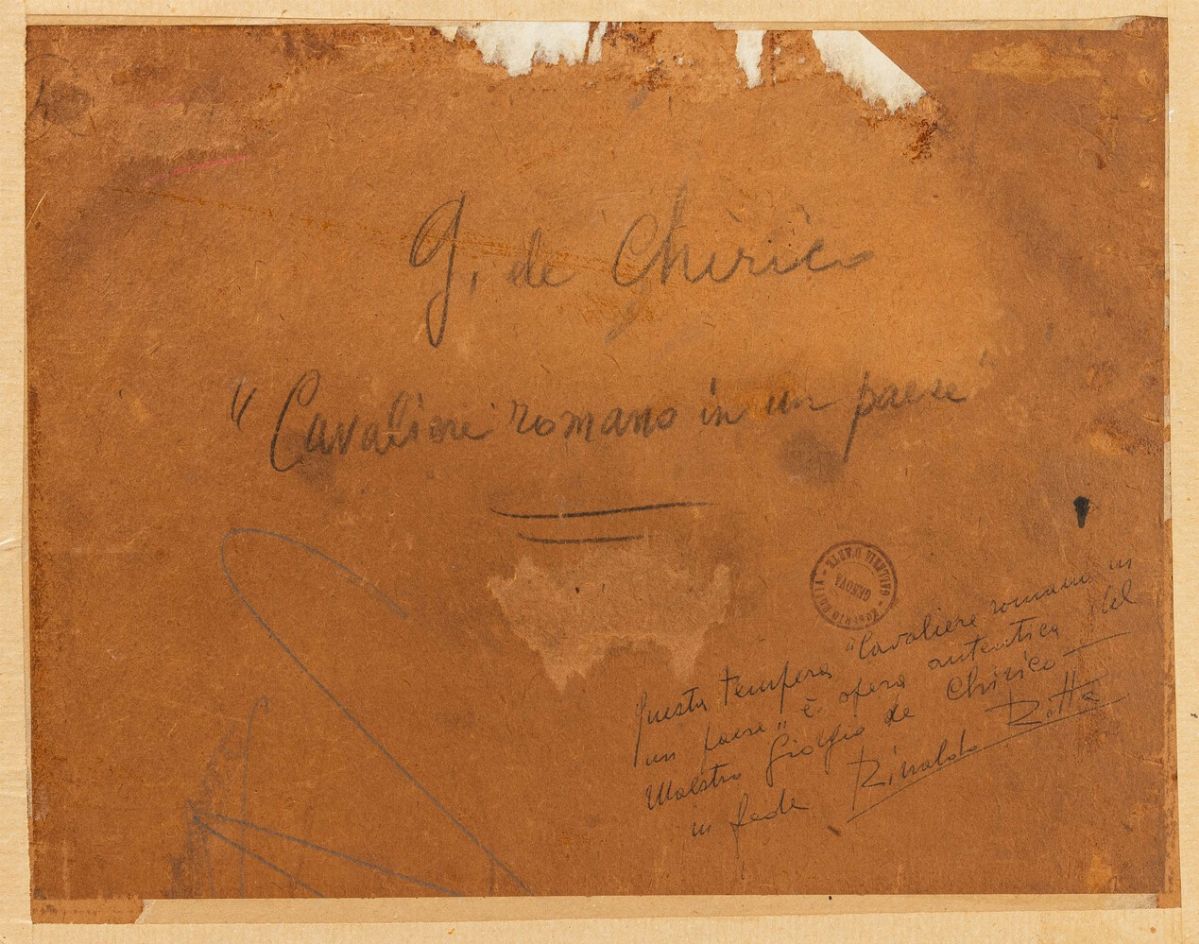 G. de Chirico
"Cavaliere romano in un paese"
GALLERIA D'ARTE - ROTTA - GENOVA
Questa tempera "Cavaliere romano in
un paese" è opera autentica del
Maestro Giorgio de Chirico —
in fede Rinaldo Rotta